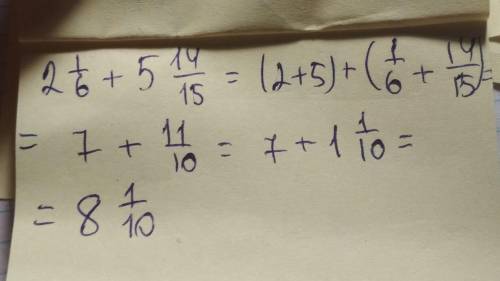 2 1/6 + 5 14/15 = (2+5) + (1/6 + 14/15) =
= 7 + 11/10 = 7 + 1 1/10 =
= 8 1/10